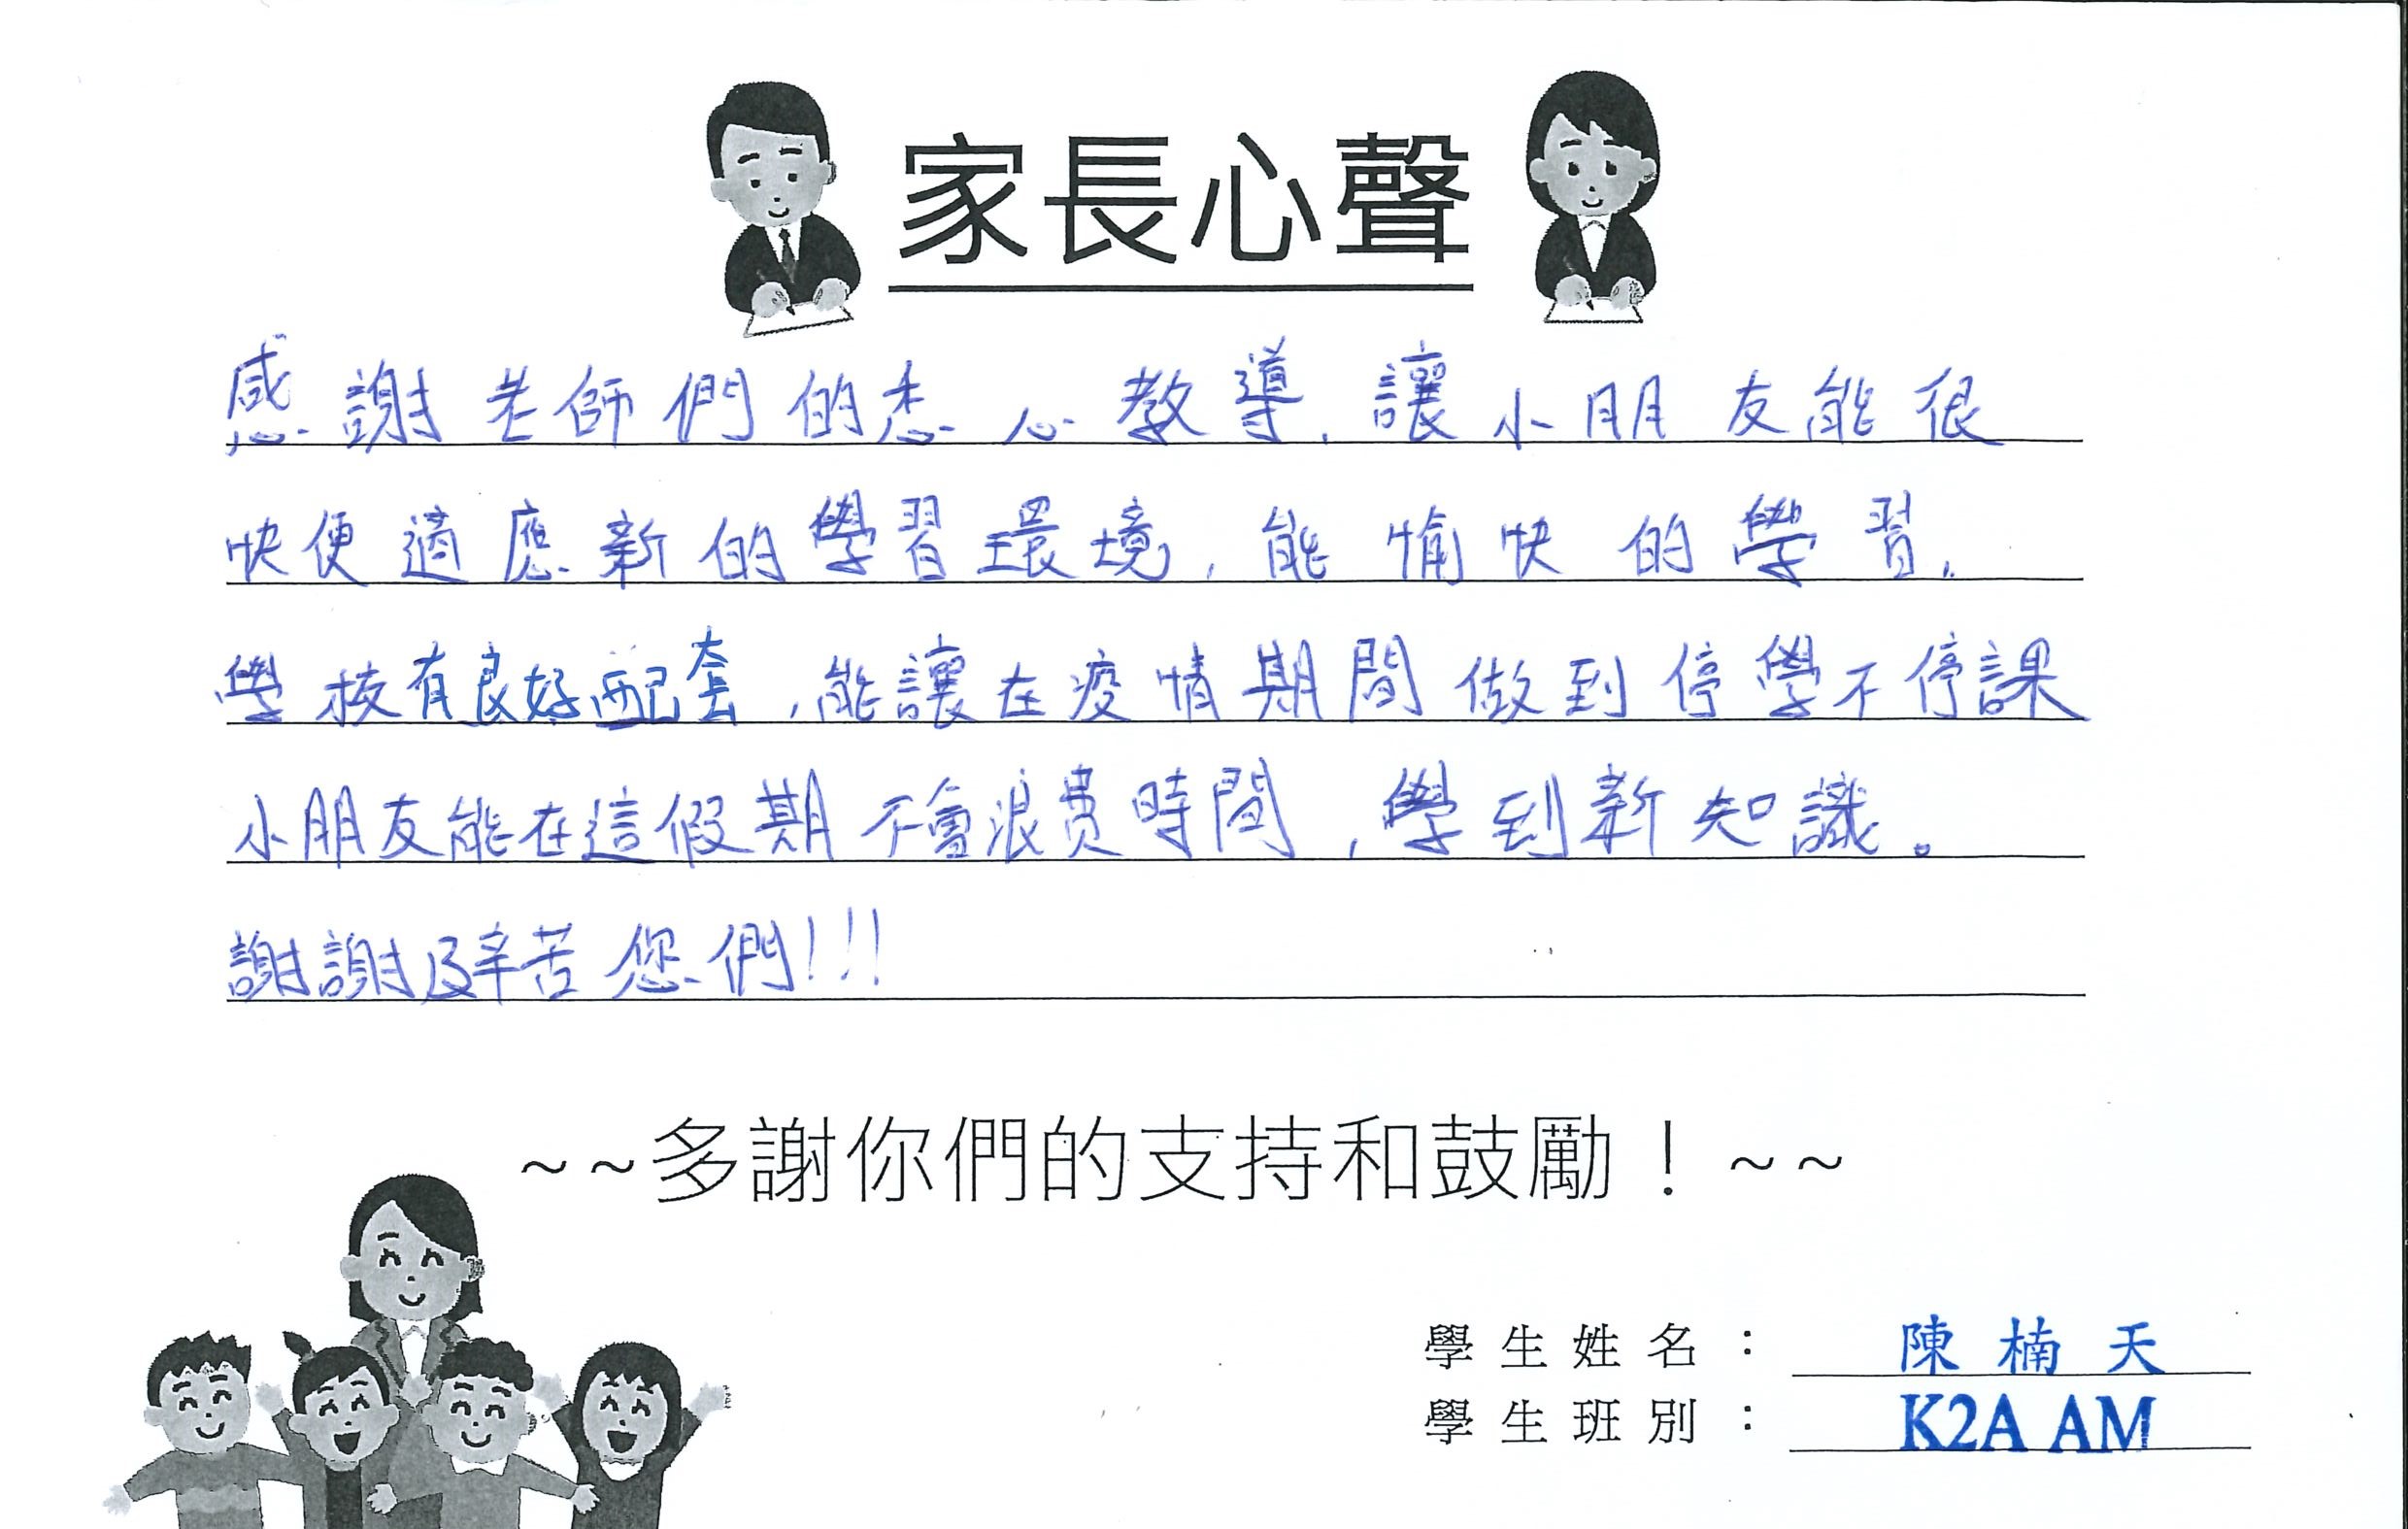 家長心聲
感謝老師們的悉心教導，讓小朋友能很
快便適應新的學習環境，能愉快的學習。
學校有良好配套，能讓在疫情期間做到停學不停課
小朋友能在這假期不會浪費時間，學到新知識。
謝謝及辛苦您們!!!
~~多謝你們的支持和鼓勵！~~
學生姓名： 陳楠天
學生班別： K2A AM